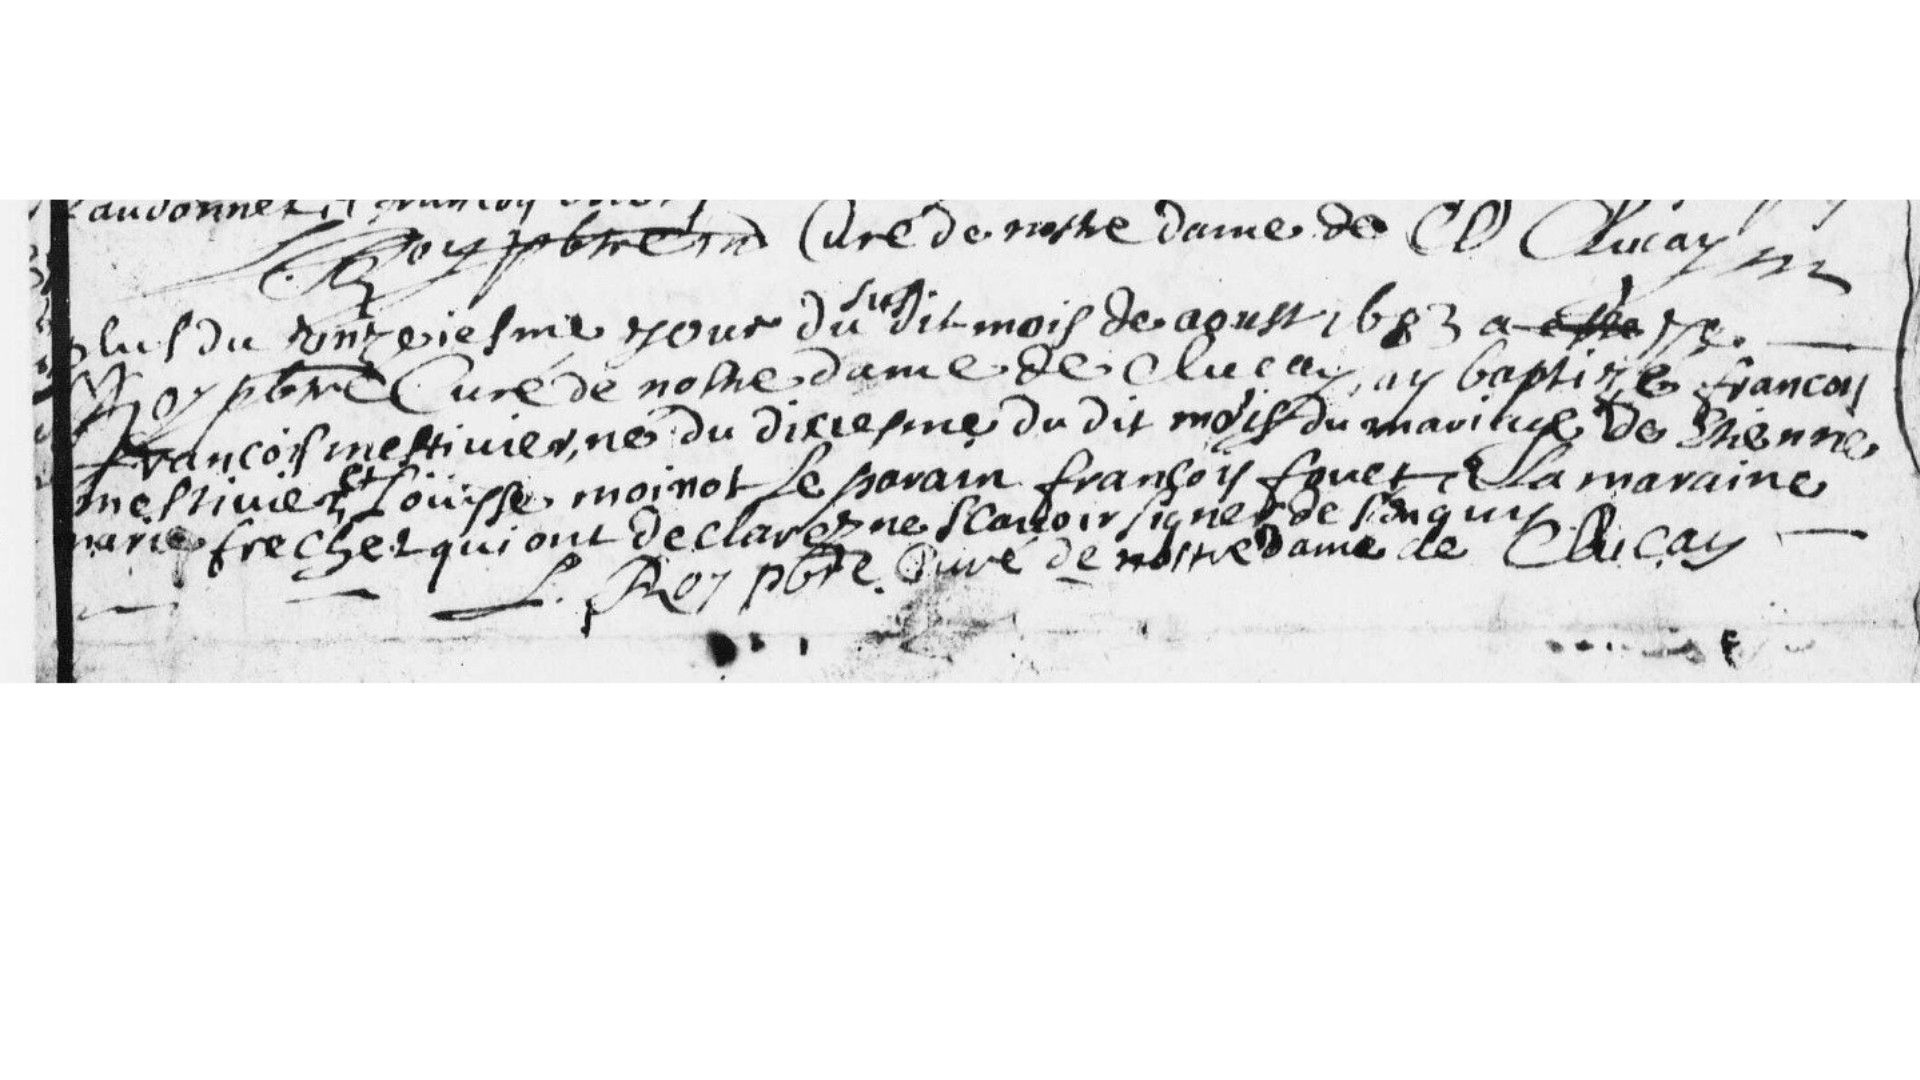 audonnet
Roy pbtre Curé de nostre dame de Clucay
plus du onzeiesme jour du susdit mois de aoust 1683 a este je
Roy pbtre Curé de nostre dame de Clucay, ay baptize francois
francois mestivier, né du dixiesme du dit mois du mariage de Etienne
mestivier et Louisse moinot Le parain françois fouet & La maraine
marie frechet qui ont declarez ne scavoir signer de ce enquis
L. Roy pbtre. Curé de nostre dame de Clucay